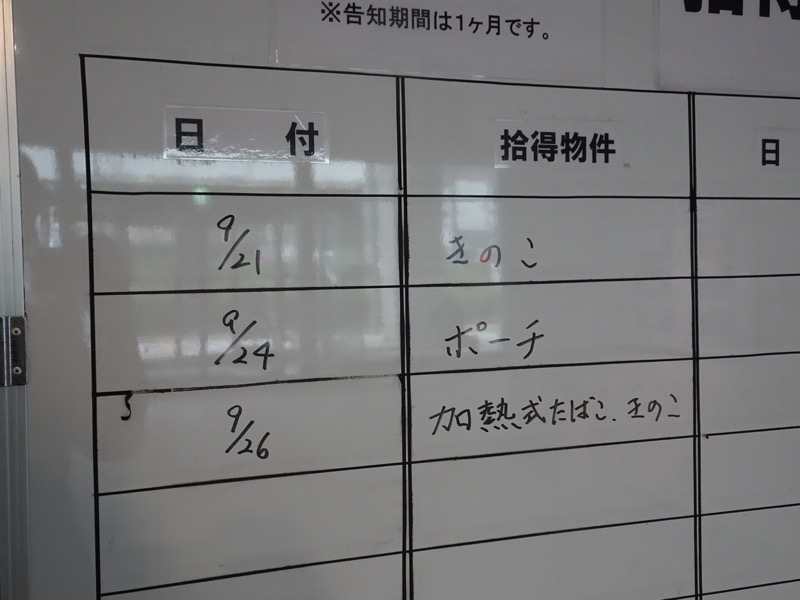 ※告知期間は1ヶ月です。
日 付 拾得物件 日
9/21 きのこ
9/24 ポーチ
9/26 加熱式たばこ、きのこ